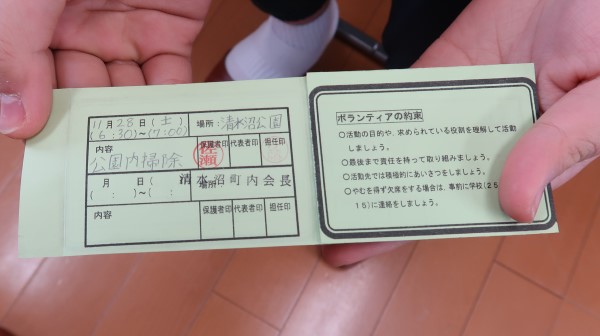 11月28日(土)
(6:30)～(7:00)
場所:清水沼公園
内容
公園内掃除
保護者印 代表者印 担任印
佐瀬
月 日( )
( : )～( : )
場所
清水沼町内会長
内容
保護者印 代表者印 担任印
ボランティアの約束
○活動の目的や、求められている役割を理解して活動
しましょう。
○最後まで責任を持って取り組みましょう。
○活動先では積極的にあいさつをしましょう。
○やむを得ず欠席をする場合は、事前に学校(25
15)に連絡をしましょう。